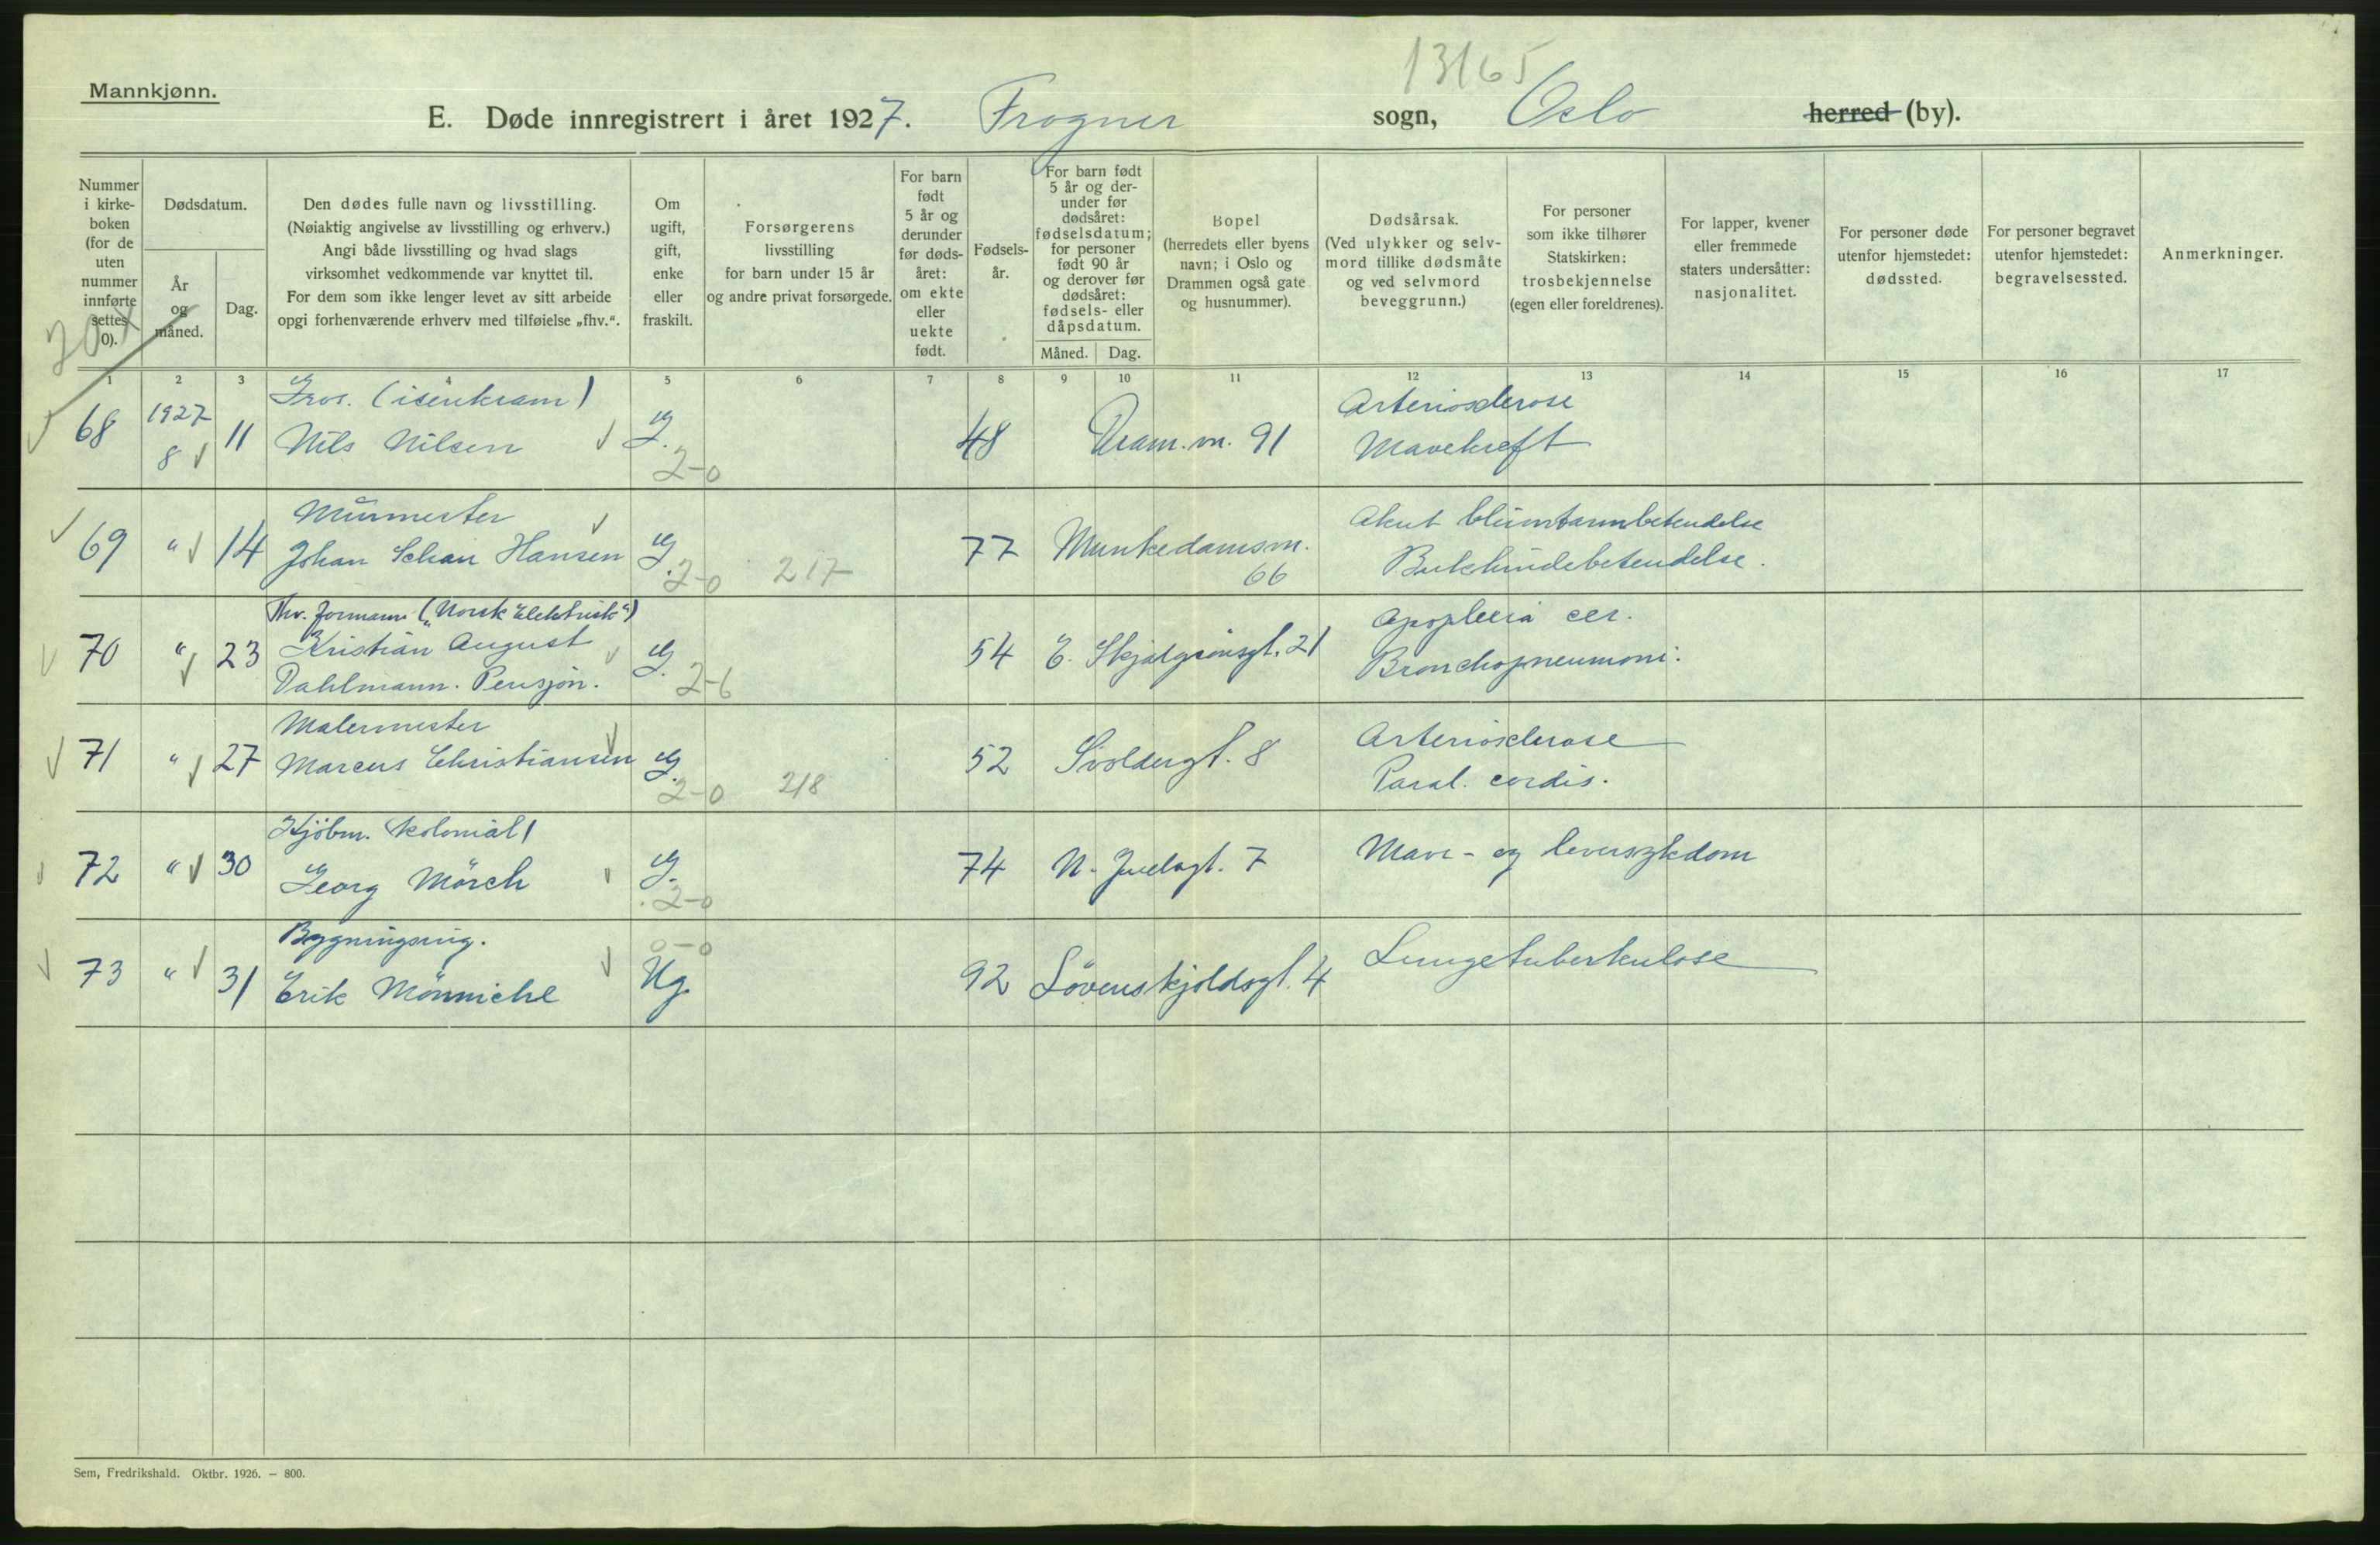 13165
Mannkjønn.
E. Døde innregistrert i året 1927. Frogner sogn, Oslo herred (by).
Nummer i kirkeboken (for de uten nummer innførte settes 0).
Dødsdatum.
År og måned.
Dag.
Den dødes fulle navn og livsstilling.
(Nøiaktig angivelse av livsstilling og erhverv.)
Angi både livsstilling og hvad slags
virksomhet vedkommende var knyttet til.
For dem som ikke lenger levet av sitt arbeide
opgi forhenværende erhverv med tilføielse „fhv.“.
Om ugift, gift, enke eller fraskilt.
Forsørgerens
livsstilling
for barn under 15 år
og andre privat forsørgede.
For barn født 5 år og derunder før dødsåret: om ekte eller uekte født.
Fødselsår.
For barn født 5 år og derunder før dødsåret: fødselsdatum; for personer født 90 år og derover før dødsåret: fødsels- eller dåpsdatum.
Måned. Dag.
Bopel
(herredets eller byens
navn; i Oslo og
Drammen også gate
og husnummer).
Dødsårsak.
(Ved ulykker og selvmord
tillike dødsmåte
og ved selvmord
beveggrunn.)
For personer
som ikke tilhører
Statskirken:
trosbekjennelse
(egen eller foreldrenes).
For lapper, kvener
eller fremmede
staters undersåtter:
nasjonalitet.
For personer døde
utenfor hjemstedet:
dødssted.
For personer begravet
utenfor hjemstedet:
begravelsessted.
Anmerkninger.
1 2 3 4 5 6 7 8 9 10 11 12 13 14 15 16 17
Gros. (isenkram) Arteriosclerose
68 1927 8 11 Nils Nilsen G. 2-0 48 Dram.vn. 91 Mavekreft
Murmester Akut blindtarmbetendelse
69 " 14 Johan Schau Hansen G. 2-0 217 77 Munkedamsvn. 66 Bukhindebetendelse.
Fhv. formann („Norsk Elektrisk“) Apoplexia cer.
70 " 23 Kristian August G. 2-6 54 E. Skjalgsønsgt. 21 Bronchopneumoni.
Dahlmann. Pensjon.
Malermester Arteriosclerose
71 " 27 Marcus Christiansen G. 2-0 218 52 Svoldergt. 8 Paral. cordis.
Kjöbm. kolonial)
72 " 30 Georg Mörch G. 2-0 74 N. Juelsgt. 7 Mave- og leversykdom
Bygningsing. 0-0
73 " 31 Erik Mönniche Ug. 92 Lövenskjoldsgt. 4 Lungetuberkulose
Sem, Fredrikshald. Oktbr. 1926. — 800.